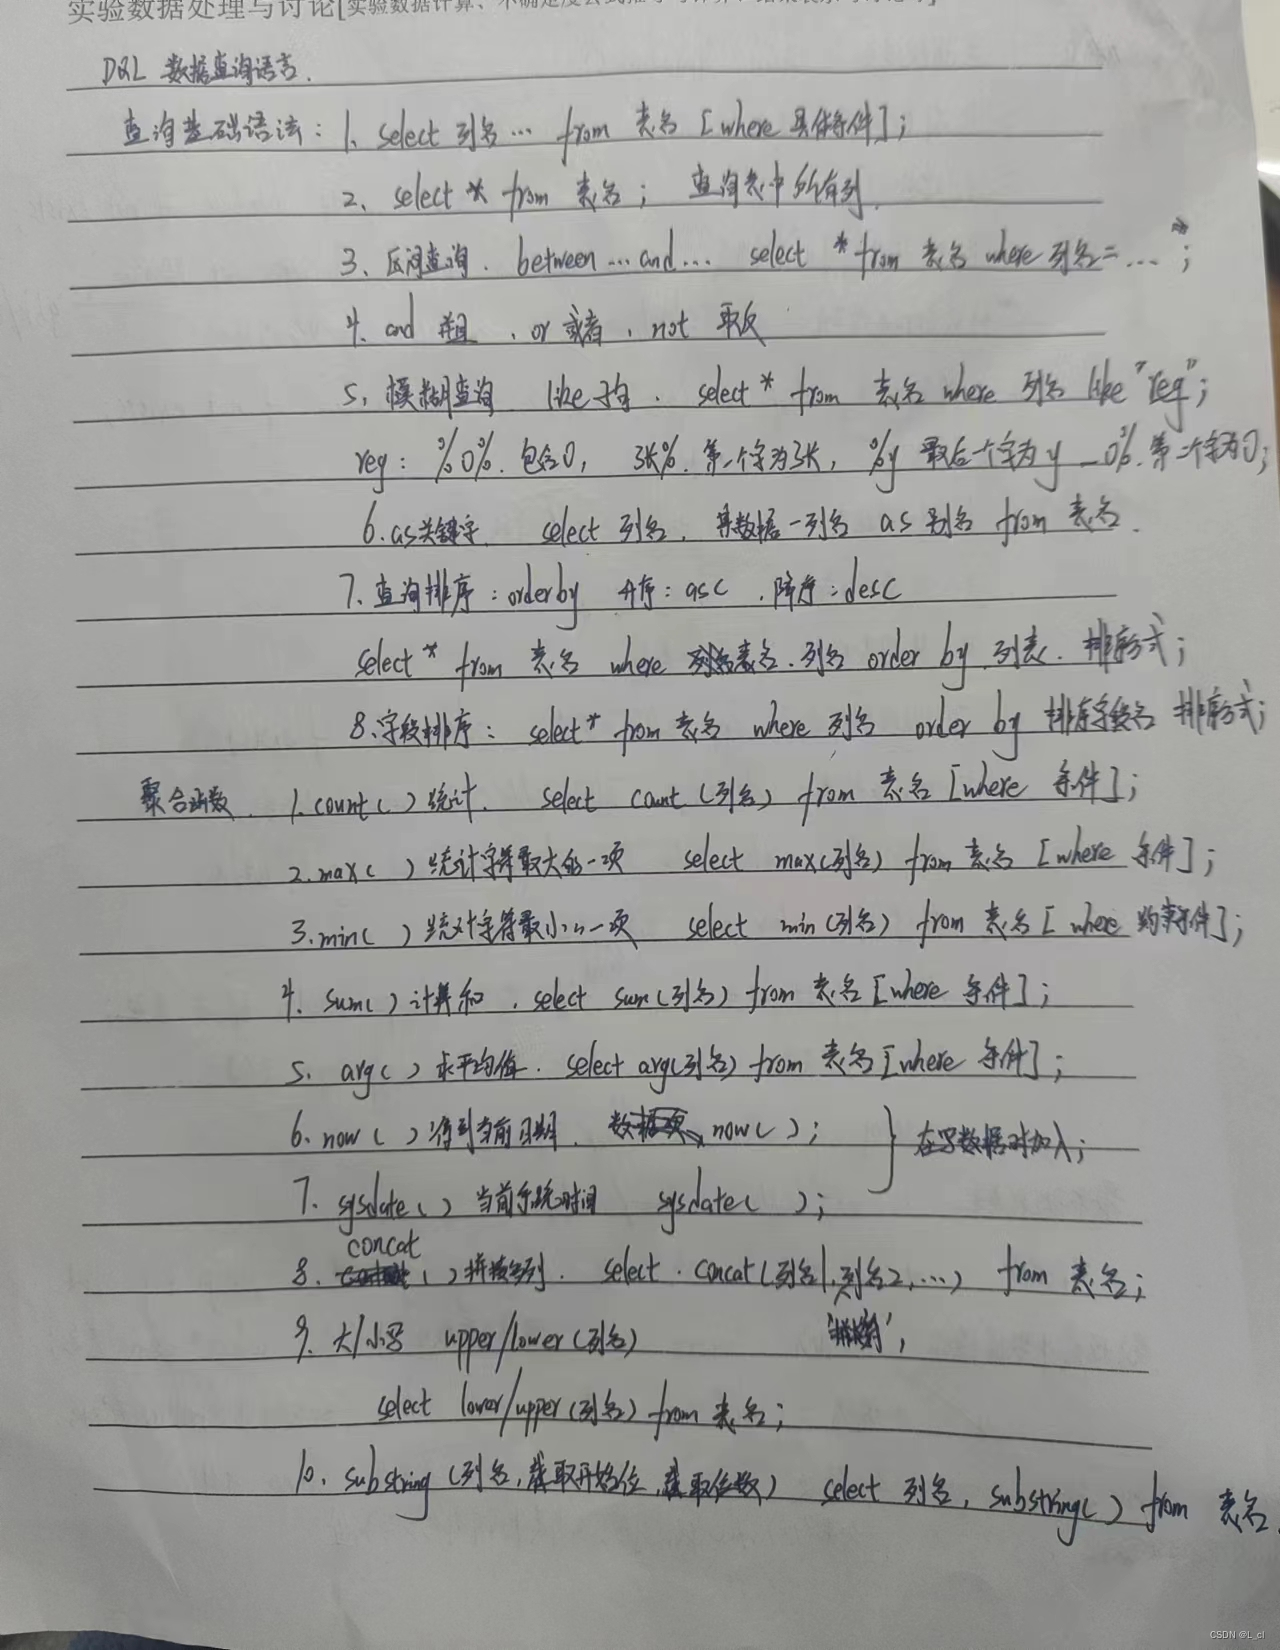 实验数据处理与讨论[实验数据计算、不确定度公式推导与计算、结果表示
DQL 数据查询语言.
查询基础语法: 1. select 列名… from 表名 [where 具体条件];
2、select * from 表名; 查询表中所有列.
3、区间查询. between…and… select * from 表名 where 列名=…*;
4. and 并且 . or 或者. not 取反
5. 模糊查询 like 子句. select * from 表名 where 列名 like "reg";
reg: %0%. 包含0, 张%. 第一个字为张, %y 最后一个字为 y _0%. 第二个字为0;
6. as关键字 select 列名. 某数据一列名 as 别名 from 表名.
7、查询排序: order by 升序: asc . 降序: desc
select * from 表名 where 表名.列名 order by 列表. 排序方式;
8.字段排序: select * from 表名 where 列名 order by 排序字段名 排序方式;
聚合函数. 1. count( ) 统计. select count (列名) from 表名 [where 条件];
2. max( ) 统计字符最大的一项 select max(列名) from 表名 [where 条件];
3. min( ) 统计字符最小的一项 select min(列名) from 表名 [where 约束条件];
4. sum( ) 计算和 . select sum(列名) from 表名 [where 条件];
5. arg( ) 求平均值. select arg(列名) from 表名 [where 条件];
6. now( ) 得到当前日期. now( ); } 在写数据时加入;
7. sysdate( ) 当前系统时间 sysdate( );
8. concat ( ) 拼接多列. select . concat(列名1,列名2,…) from 表名;
9. 大/小写 upper/lower(列名)
select lower/upper(列名) from 表名;
10. substring (列名,截取开始位,截取位数) select 列名, substring( ) from 表名.
CSDN @L_cl